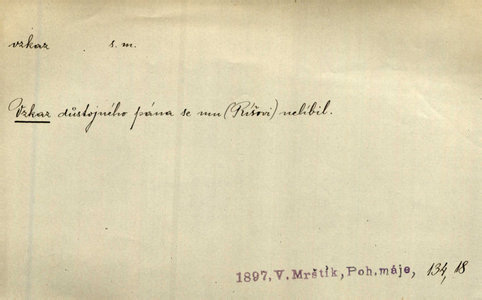 vzkaz s. m.
Vzkaz důstojného pána se mu (Ríšovi) nelíbil.
1897, V. Mrštík, Poh. máje, 134, 18